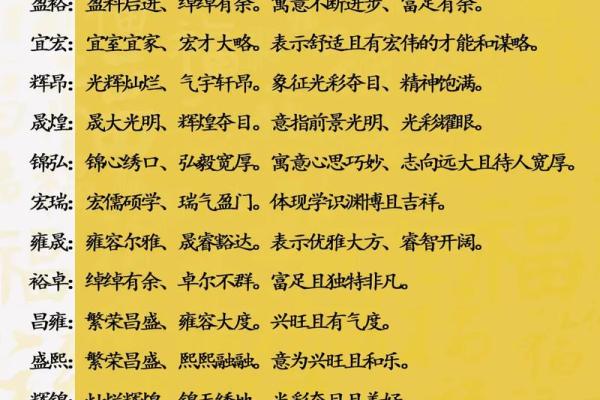 盈裕：盈科后进、绰绰有余。寓意不断进步、富足有余。
宜宏：宜室宜家、宏才大略。表示舒适且有宏伟的才能和谋略。
辉昂：光辉灿烂、气宇轩昂。象征光彩夺目、精神饱满。
晟煌：晟大光明、辉煌夺目。意指前景光明、光彩耀眼。
锦弘：锦心绣口、弘毅宽厚。寓意心思巧妙、志向远大且待人宽厚。
宏瑞：宏儒硕学、瑞气盈门。体现学识渊博且吉祥。
雍晟：雍容尔雅、晟睿豁达。表示优雅大方、睿智开阔。
裕卓：绰绰有余、卓尔不群。富足且独特非凡。
昌雍：繁荣昌盛、雍容大度。兴旺且有气度。
盛熙：繁荣昌盛、熙熙融融。意为兴旺且和乐。
辉锦：灿烂辉煌、锦天绣地。光彩夺目且美好。